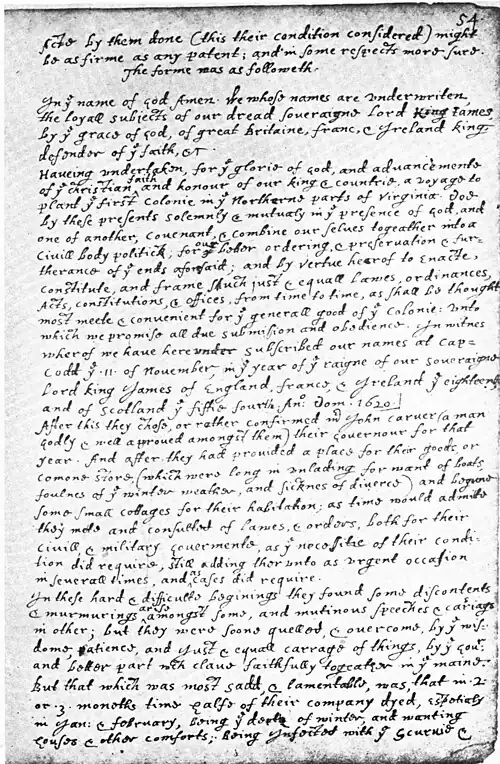 54
Acts by them done (this their condition considered) might
be as firme as any patent; and in some respects more sure.
The forme was as followeth.
In yͤ name of God Amen. We whose names are underwriten,
the loyall subjects of our dread soveraigne Lord King James,
by yͤ grace of God, of great Britaine, franc, & Ireland king,
defender of yͤ faith, &c.
Haveing undertaken, for yͤ glorie of God, and advancemente
of yͤ christian faith and honour of our king & countrie, a voyage to
plant yͤ first colonie in yͤ Northerne parts of Virginia. Doe
by these presents solemnly & mutualy in yͤ presence of God, and
one of another, covenant, & combine our selves togeather into a
Civill body politick; for our better ordering, & preservation & fur-
therance of yͤ ends aforesaid; and by vertue hearof to Enacte,
constitute, and frame shuch just & equall Lawes, ordinances,
Acts, constitutions, & offices, from time to time, as shall be thought
most meete & convenient for yͤ generall good of yͤ Colonie: unto
which we promise all due submission and obedience. In witnes
wherof we have hereunder subscribed our names at Cap-
Codd yͤ .11. of November, in yͤ year of yͤ raigne of our soveraigne
Lord king James of England, france, & Ireland yͤ eighteenth
and of Scotland yͤ fiftie fourth. Anͦ: Dom. 1620.
After this they chose, or rather confirmed mͬ John carver (a man
godly & well aproved amongst them) their Governour for that
year. And after they had provided a place for their goods, or
comone store, (which were long in unlading for want of boats,
foulnes of yͤ winter weather, and sicknes of diverce) and begune
some small cottages for their habitation; as time would admitte
they mete and consulted of lawes, & orders, both for their
civill & military Govermente, as yͤ necessitie of their condi-
tion did require, still adding therunto as urgent occasion
in severall times, and as cases did require.
In these hard & difficulte beginings they found some discontents
& murmurings arise amongst some, and mutinous speeches & cariags
in other; but they were soone quelled, & overcome, by yͤ wis-
dome, patience, and just & equall carrage of things, by yͤ Govͬ
and better part wͨͪ clave faithfully togeather in yͤ maine.
But that which was most sadd, & lamentable, was, that in .2.
or .3. moneths time halfe of their company dyed, espetialy
in Jan: & february, being yͤ depth of winter, and wanting
houses & other comforts; being Infected with yͤ Scurvie &